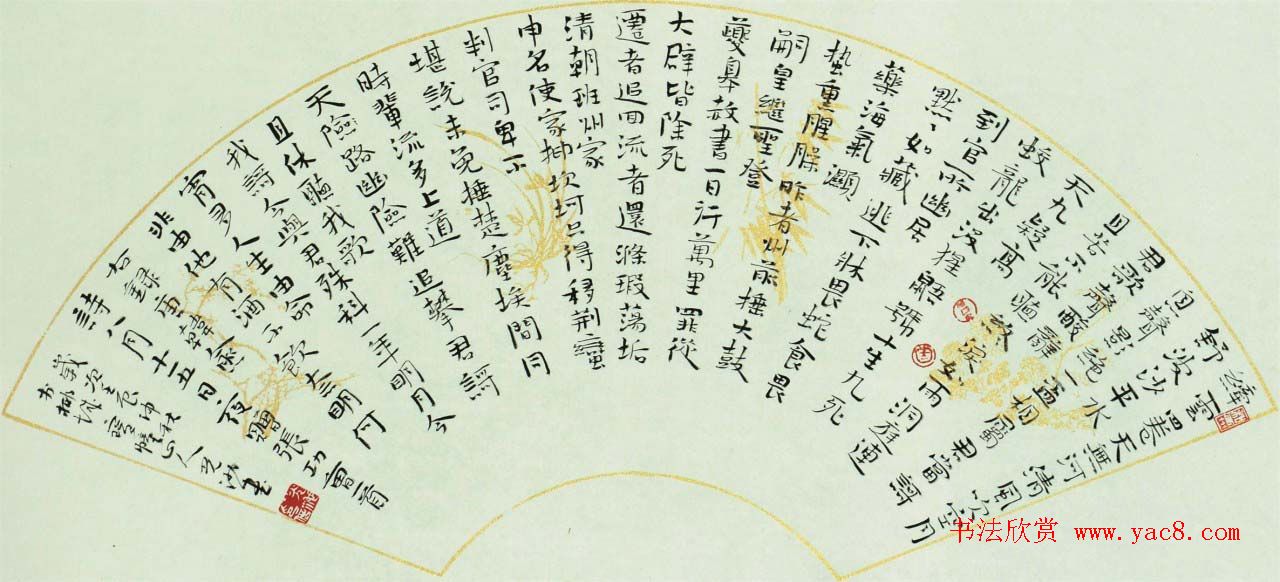 纖雲四卷天無河清風吹空月
舒波沙平水
息聲影絕一盃相屬君當謌
君歌聲酸辭
且苦不能聽終淚如雨洞庭連
天九疑高
蛟龍出沒猩鼯號十生九死
到官所幽居
默々如藏逃下牀畏蛇食畏
藥海氣濕
蟄熏腥臊昨者州前捶大鼓
嗣皇繼聖登
夔皋赦書一日行萬里罪從
大辟皆除死
遷者追回流者還滌瑕蕩垢
清朝班州家
申名使家抑坎坷只得移荊蠻
判官司卑不
堪說未免捶楚塵埃間同
時輩流多上道
天險路幽險難追攀君謌
且休聽我歌
我謌今與君殊科一年明月今
宵多人生由命
非由他有酒不飲奈明何
右錄唐韓愈
詩八月十五日夜贈張功曹首
書法欣赏 www.yac8.com